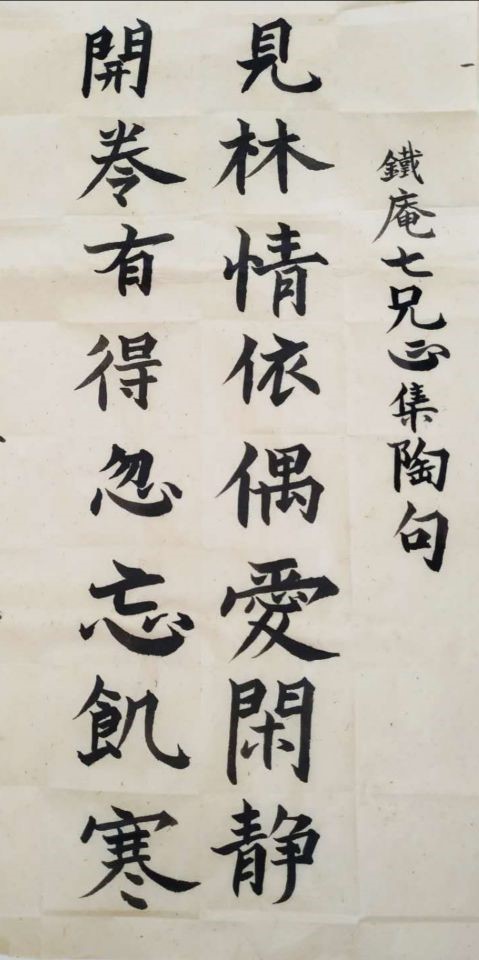 鐵庵七兄正集陶句
見林情依偶愛閑静
開卷有得忽忘飢寒